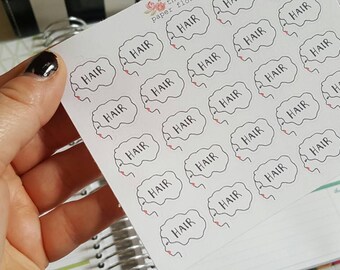 paper
HAIR HAIR HAIR HAIR
HAIR HAIR HAIR HAIR HAIR
HAIR HAIR HAIR HAIR HAIR
HAIR HAIR HAIR HAIR
HAIR HAIR HAIR HAIR